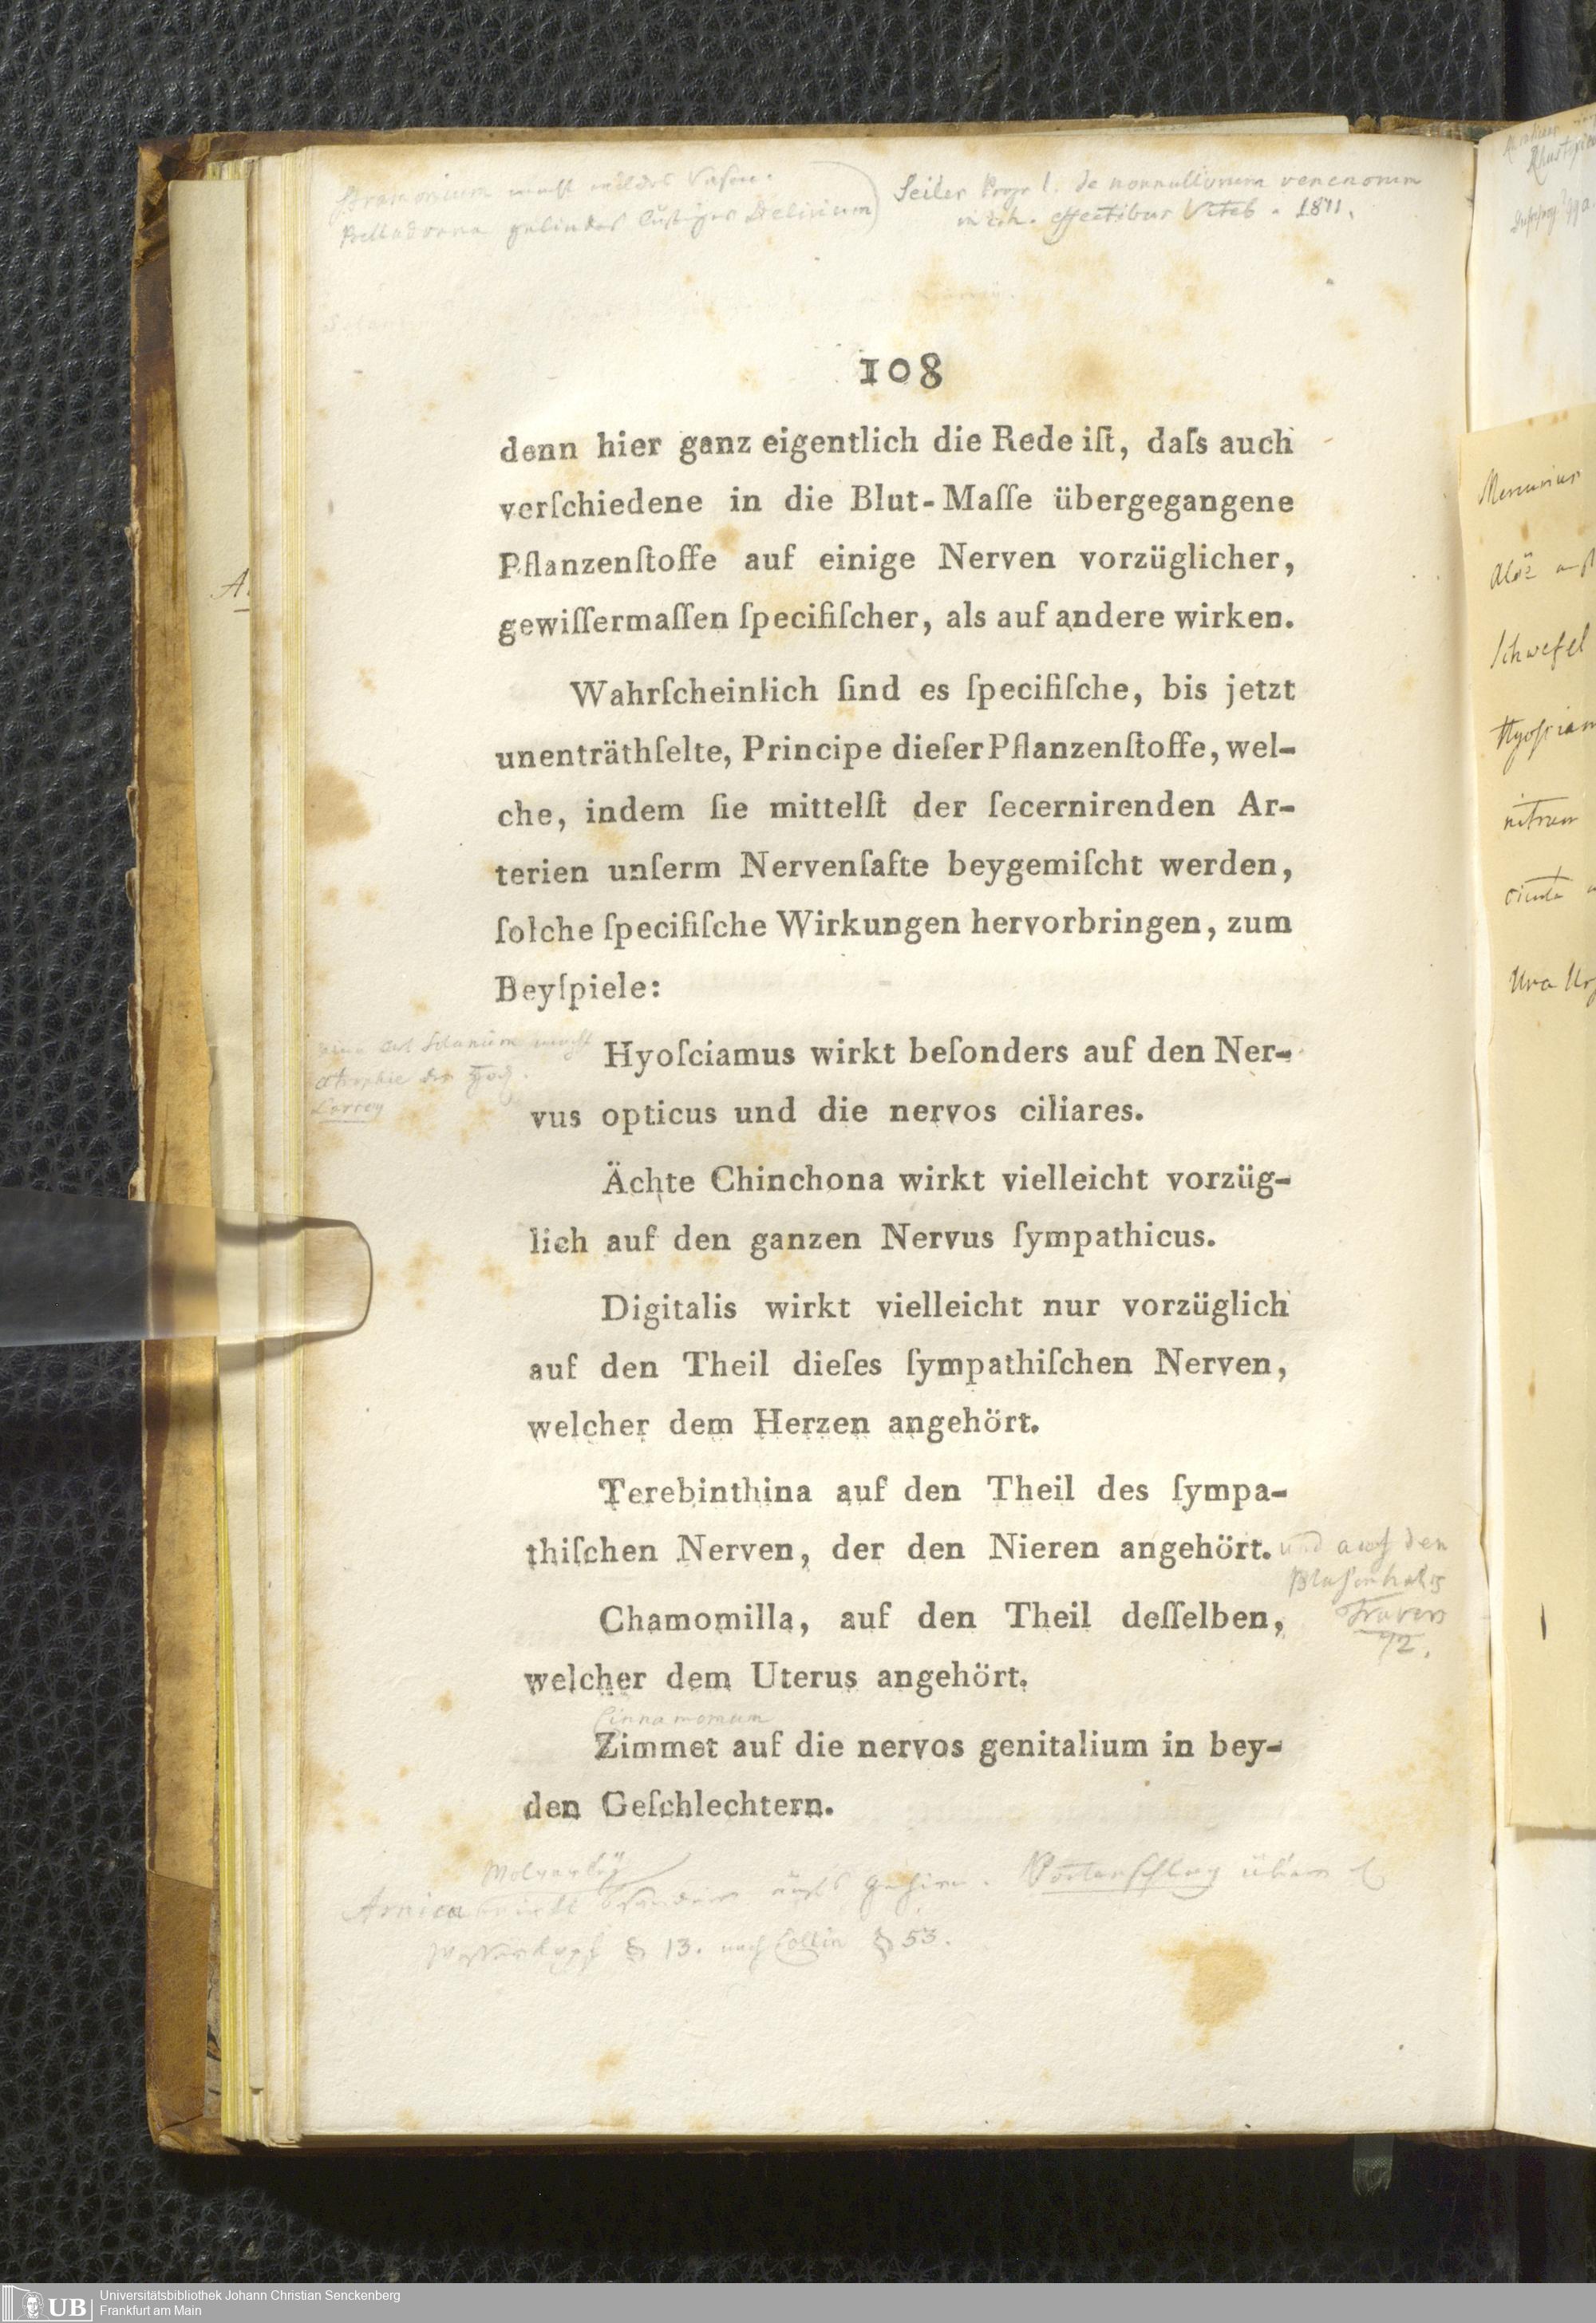 Stramonium macht wildes Rasen.
Belladonna gelindes lustiges Delirium
Seiler Progr 1. de nonnullorum venenorum
effectibus Viteb. 1811.
108
denn hier ganz eigentlich die Rede iſt, daſs auch
verſchiedene in die Blut-Maſſe übergegangene
Pflanzenſtoffe auf einige Nerven vorzüglicher,
gewiſſermaſſen ſpecifiſcher, als auf andere wirken.
Wahrſcheinlich ſind es ſpecifiſche, bis jetzt
unenträthſelte, Principe dieſer Pflanzenſtoffe, wel-
che, indem ſie mittelſt der ſecernirenden Ar-
terien unſerm Nervenſafte beygemiſcht werden,
ſolche ſpecifiſche Wirkungen hervorbringen, zum
Beyſpiele:
Solanum macht
Atrophie der Hod.
Larrey
Hyoſciamus wirkt beſonders auf den Ner-
vus opticus und die nervos ciliares.
Ächte Chinchona wirkt vielleicht vorzüg-
lich auf den ganzen Nervus ſympathicus.
Digitalis wirkt vielleicht nur vorzüglich
auf den Theil dieſes ſympathiſchen Nerven,
welcher dem Herzen angehört.
Terebinthina auf den Theil des ſympa-
thiſchen Nerven, der den Nieren angehört.
und auf den
Blasenhals
Travers
72.
Chamomilla, auf den Theil deſſelben,
welcher dem Uterus angehört.
Cinnamomum
Zimmet auf die nervos genitalium in bey-
den Geſchlechtern.
Arnica aufs Gehirn.
§ 13. nach Collin § 53.
Mercurius
Aloë
Schwefel
nitrum
cicuta
Uva Urs
UB
Universitätsbibliothek Johann Christian Senckenberg
Frankfurt am Main